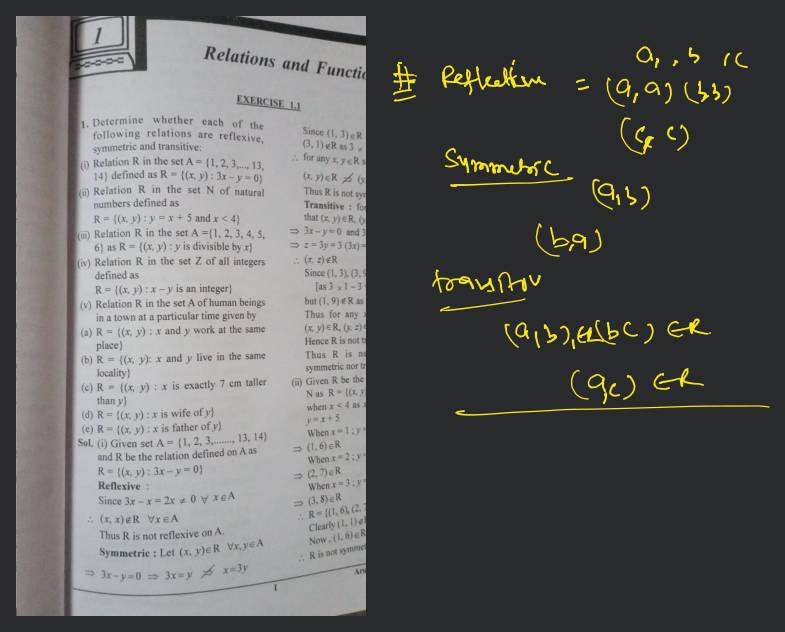 1
Relations and Functio
EXERCISE 1.1
1. Determine whether each of the
following relations are reflexive,
symmetric and transitive:
(i) Relation R in the set A = {1, 2, 3,..., 13,
14} defined as R = {(x, y) : 3x – y = 0}
(ii) Relation R in the set N of natural
numbers defined as
R = {(x, y) : y = x + 5 and x < 4}
(iii) Relation R in the set A ={1, 2, 3, 4, 5,
6} as R = {(x, y) : y is divisible by x}
(iv) Relation R in the set Z of all integers
defined as
R = {(x, y) : x – y is an integer}
(v) Relation R in the set A of human beings
in a town at a particular time given by
(a) R = {(x, y) : x and y work at the same
place}
(b) R = {(x, y): x and y live in the same
locality}
(c) R = {(x, y) : x is exactly 7 cm taller
than y}
(d) R = {(x, y) : x is wife of y}
(e) R = {(x, y) : x is father of y}
Sol. (i) Given set A = {1, 2, 3,........, 13, 14}
and R be the relation defined on A as
R = {(x, y) : 3x – y = 0}
Reflexive :
Since 3x – x = 2x ≠ 0 ∀ x∈A
∴ (x, x)∉R ∀x∈A
Thus R is not reflexive on A.
Symmetric : Let (x, y)∈R ∀x, y∈A
⇒ 3x–y=0 ⇒ 3x=y ⇏ x=3y
Since (1, 3)∈R
(3, 1)∉R as 3 ×
∴ for any x, y∈R s
(x, y)∈R ⇏ (y
Thus R is not sy
Transitive : fo
that (x, y)∈R, (y
⇒ 3x–y=0 and 3
⇒ z = 3y = 3 (3x) =
∴ (x, z)∉R
Since (1, 3), (3, 9
[as 3 × 1 – 3
but (1, 9)∉R as
Thus for any x
(x, y)∈R, (y, z)
Hence R is not t
Thus R is n
symmetric nor tr
(ii) Given R be the
N as R = {(x, y
when x < 4 as x
y = x + 5
When x = 1 ; y =
⇒ (1, 6)∈R
When x = 2 ; y =
⇒ (2, 7)∈R
When x = 3 ; y =
⇒ (3, 8)∈R
∴ R = {(1, 6), (2, 7
Clearly (1, 1)∉
Now , (1, 6)∈R
∴ R is not symme
1
a, , b , c
# Reflective = (a, a) (b b)
(c, c)
Symmetric
(a, b)
(b, a)
transitiv
(a, b), (b c) ∈R
(a, c) ∈R